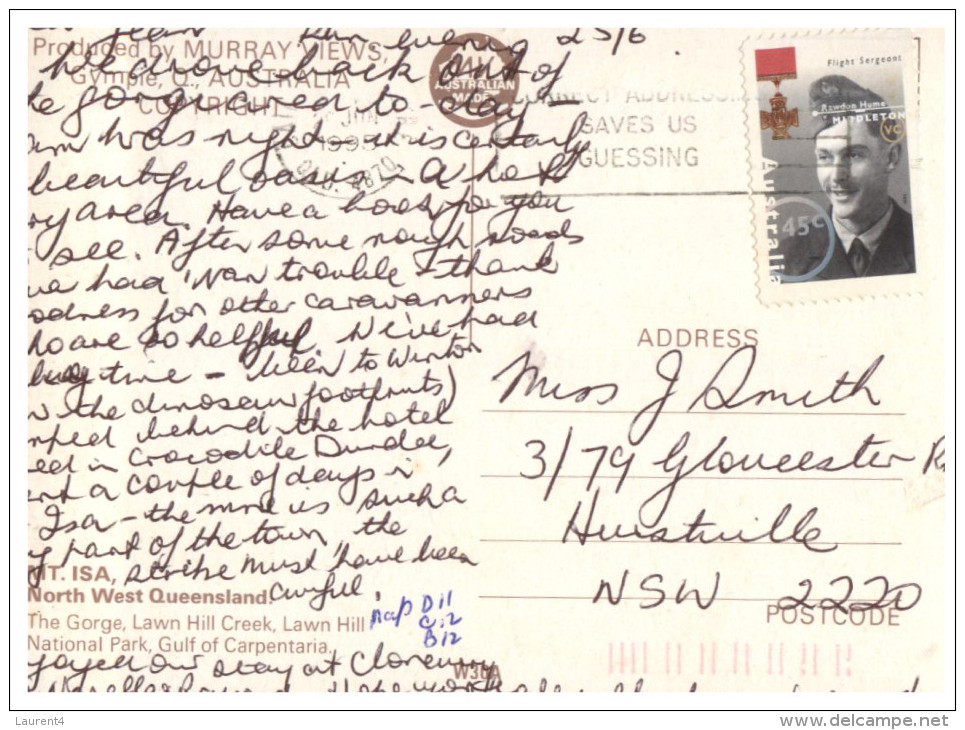 Jean 25/6
Produced by MURRAY VIEWS,
Gympie, Q., AUSTRALIA
COPYRIGHT
AUSTRALIAN
MADE
JUN
1995
QLD. 4870
CORRECT ADDRESSING
SAVES US
GUESSING
Flight Sergeant
Rawdon Hume
MIDDLETON
VC
Australia
45c
we drove back out of
the gorge area to-day -
was right - it is certainly
beautiful oasis in a hot
dry area. Have a book for you
see. After some rough roads
had 'Van trouble - thank
goodness for other caravanners
who are so helpful. We've had
busy time - been to Winton
the dinosaur footprints)
camped behind the hotel
used in Crocodile Dundee,
spent a couple of days in
Isa - the mine is such a
part of the town, the
strike must have been
awful.
MT. ISA,
North West Queensland.
The Gorge, Lawn Hill Creek, Lawn Hill
National Park, Gulf of Carpentaria.
Map D11
C12
B12
enjoyed our stay at Cloncurry
W30A
ADDRESS
Miss J Smith
3/79 Gloucester R
Hurstville
NSW 2220
POSTCODE
Laurent4
www.delcampe.net